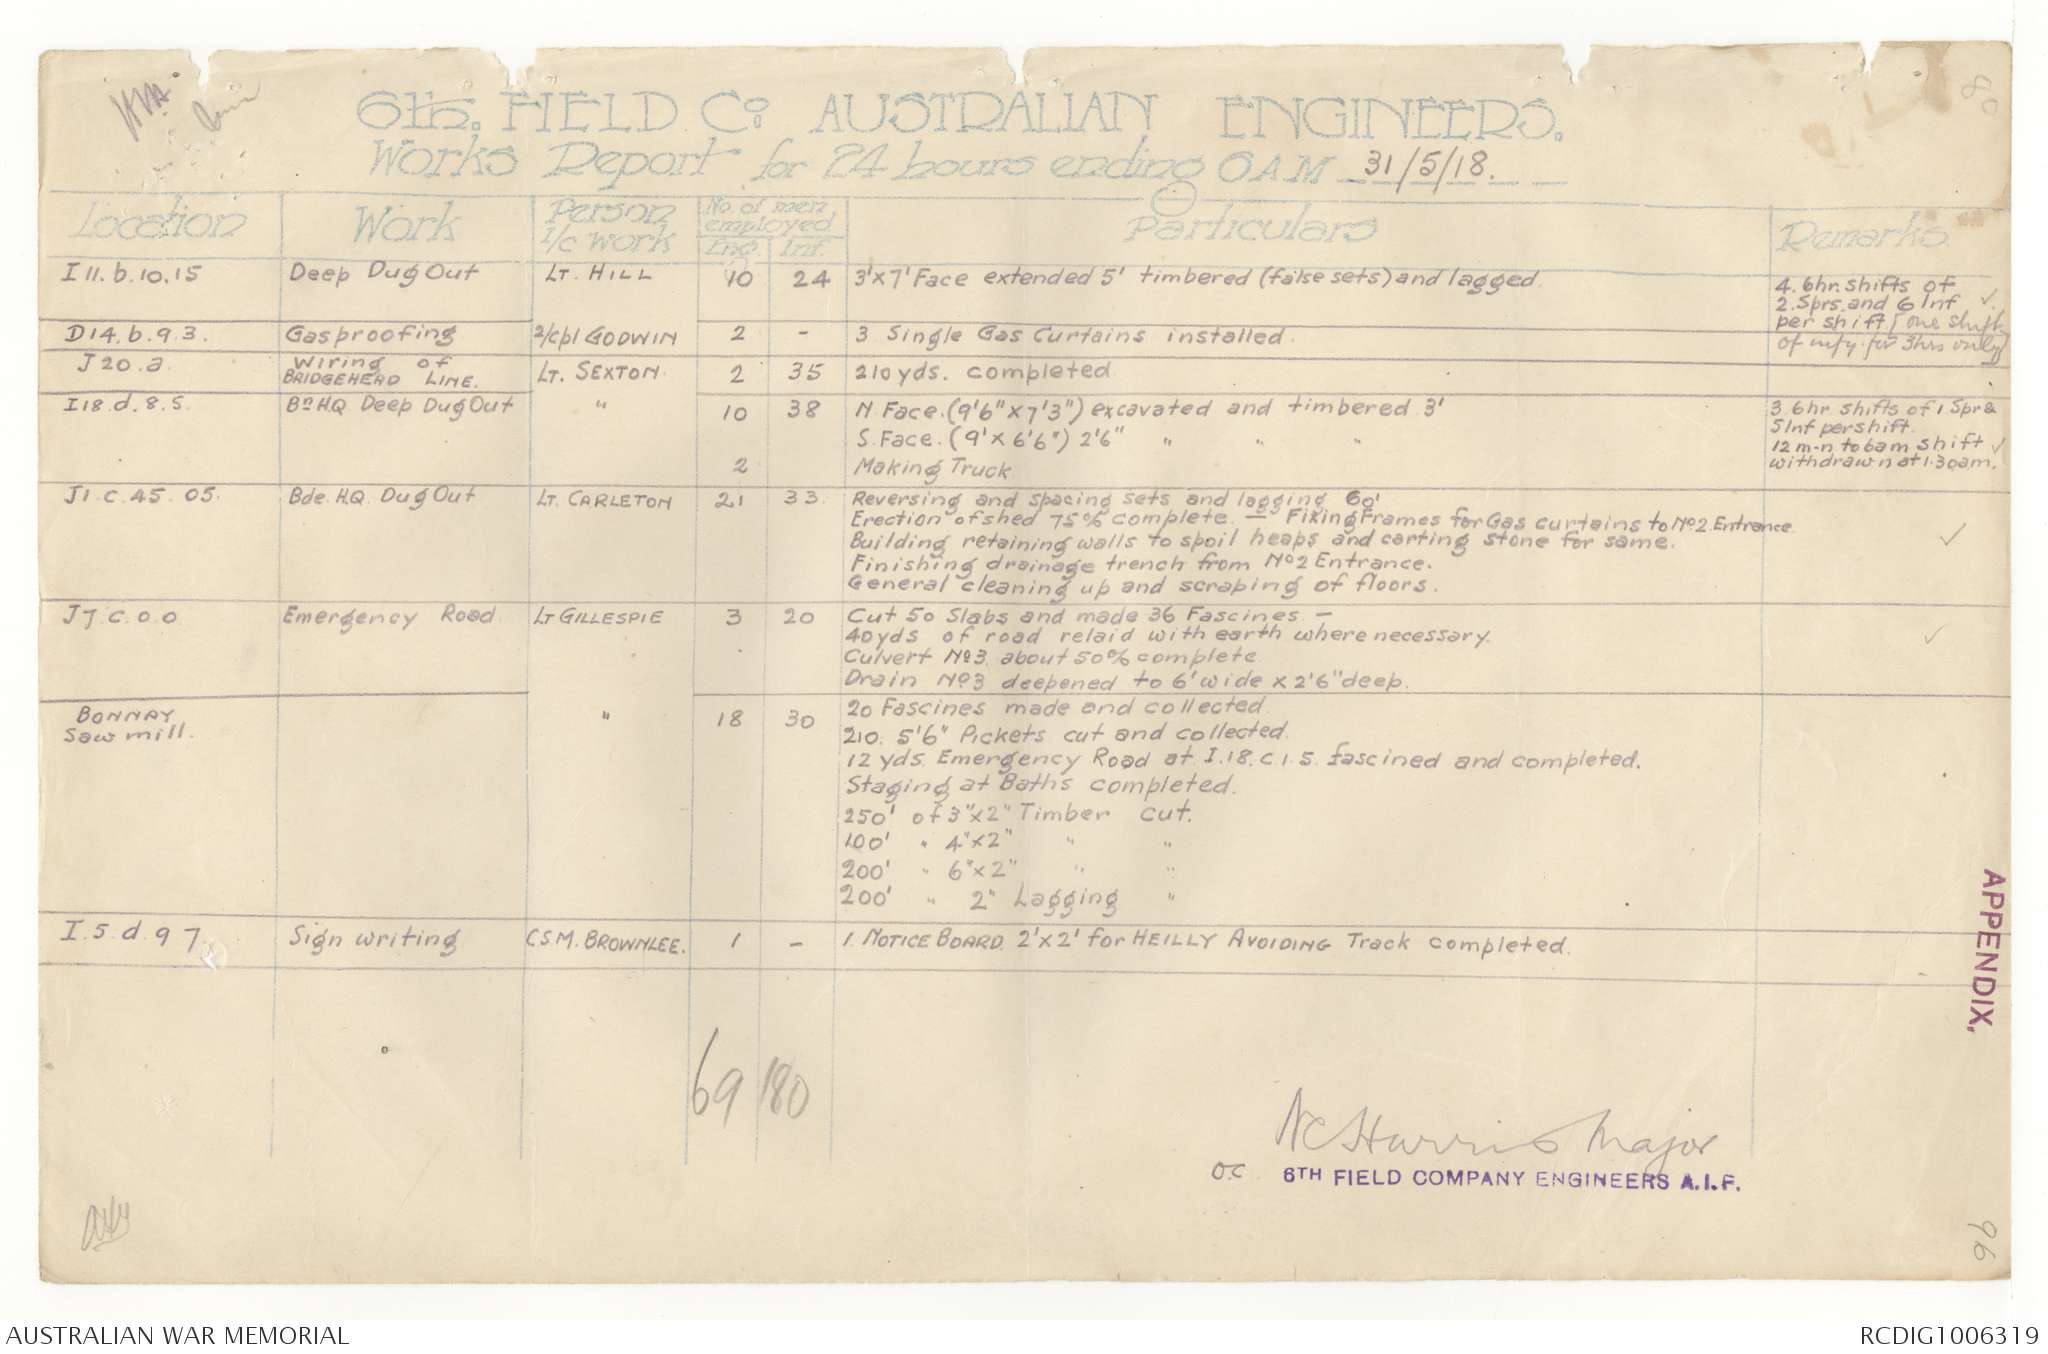 80
6th. FIELD Co. AUSTRALIAN ENGINEERS.
Works Report for 24 hours ending 6 AM 31/5/18.
Location Work Person i/c work No. of men employed Eng. Inf. Particulars Remarks
I 11. b. 10. 15 Deep Dug Out Lt. HILL 10 24 3'x7' Face extended 5' timbered (false sets) and lagged.
4. 6hr. shifts of
2. Sprs. and 6 Inf
per shift [one shift
of infy. for 3hrs only]
D14. b. 9. 3. Gasproofing 2/cpl GODWIN 2 - 3 Single Gas Curtains installed.
J 20. a Wiring of
BRIDGEHEAD LINE. Lt. SEXTON. 2 35 210 yds. completed
I 18. d. 8. 5. Bn HQ Deep Dug Out " 10 38 N. Face. (9'6" x 7'3") excavated and timbered 3'
S. Face. (9' x 6'6") 2'6" " " "
2 Making Truck
3. 6hr shifts of 1 Spr &
5 Inf per shift.
12 m-n. to 6am shift
withdrawn at 1.30am.
J1. c. 45. 05. Bde. H.Q. Dug Out Lt. CARLETON 21 33. Reversing and spacing sets and lagging 60'
Erection of shed 75% complete. — Fixing Frames for Gas curtains to No2. Entrance.
Building retaining walls to spoil heaps and carting stone for same.
Finishing drainage trench from No2 Entrance.
General cleaning up and scraping of floors.
J7. c. 0 0 Emergency Road. Lt GILLESPIE 3 20 Cut 50 Slabs and made 36 Fascines —
40yds of road relaid with earth where necessary.
Culvert No3. about 50% complete.
Drain No3 deepened to 6' wide x 2'6" deep.
BONNAY
Saw mill. " 18 30 20 Fascines made and collected.
210. 5'6" Pickets cut and collected.
12 yds. Emergency Road at I.18. c. 1. 5. fascined and completed.
Staging at Baths completed.
250' of 3"x2" Timber cut.
100' " 4"x2" " "
200' " 6"x2" " "
200' " 2" Lagging "
I. 5. d. 9 7. Sign writing C.S.M. BROWNLEE. 1 - 1. NOTICE BOARD. 2'x2' for HEILLY AVOIDING Track completed.
69 180
APPENDIX.
NC Harris Major
O.C. 6TH FIELD COMPANY ENGINEERS A.I.F.
96
AUSTRALIAN WAR MEMORIAL RCDIG1006319